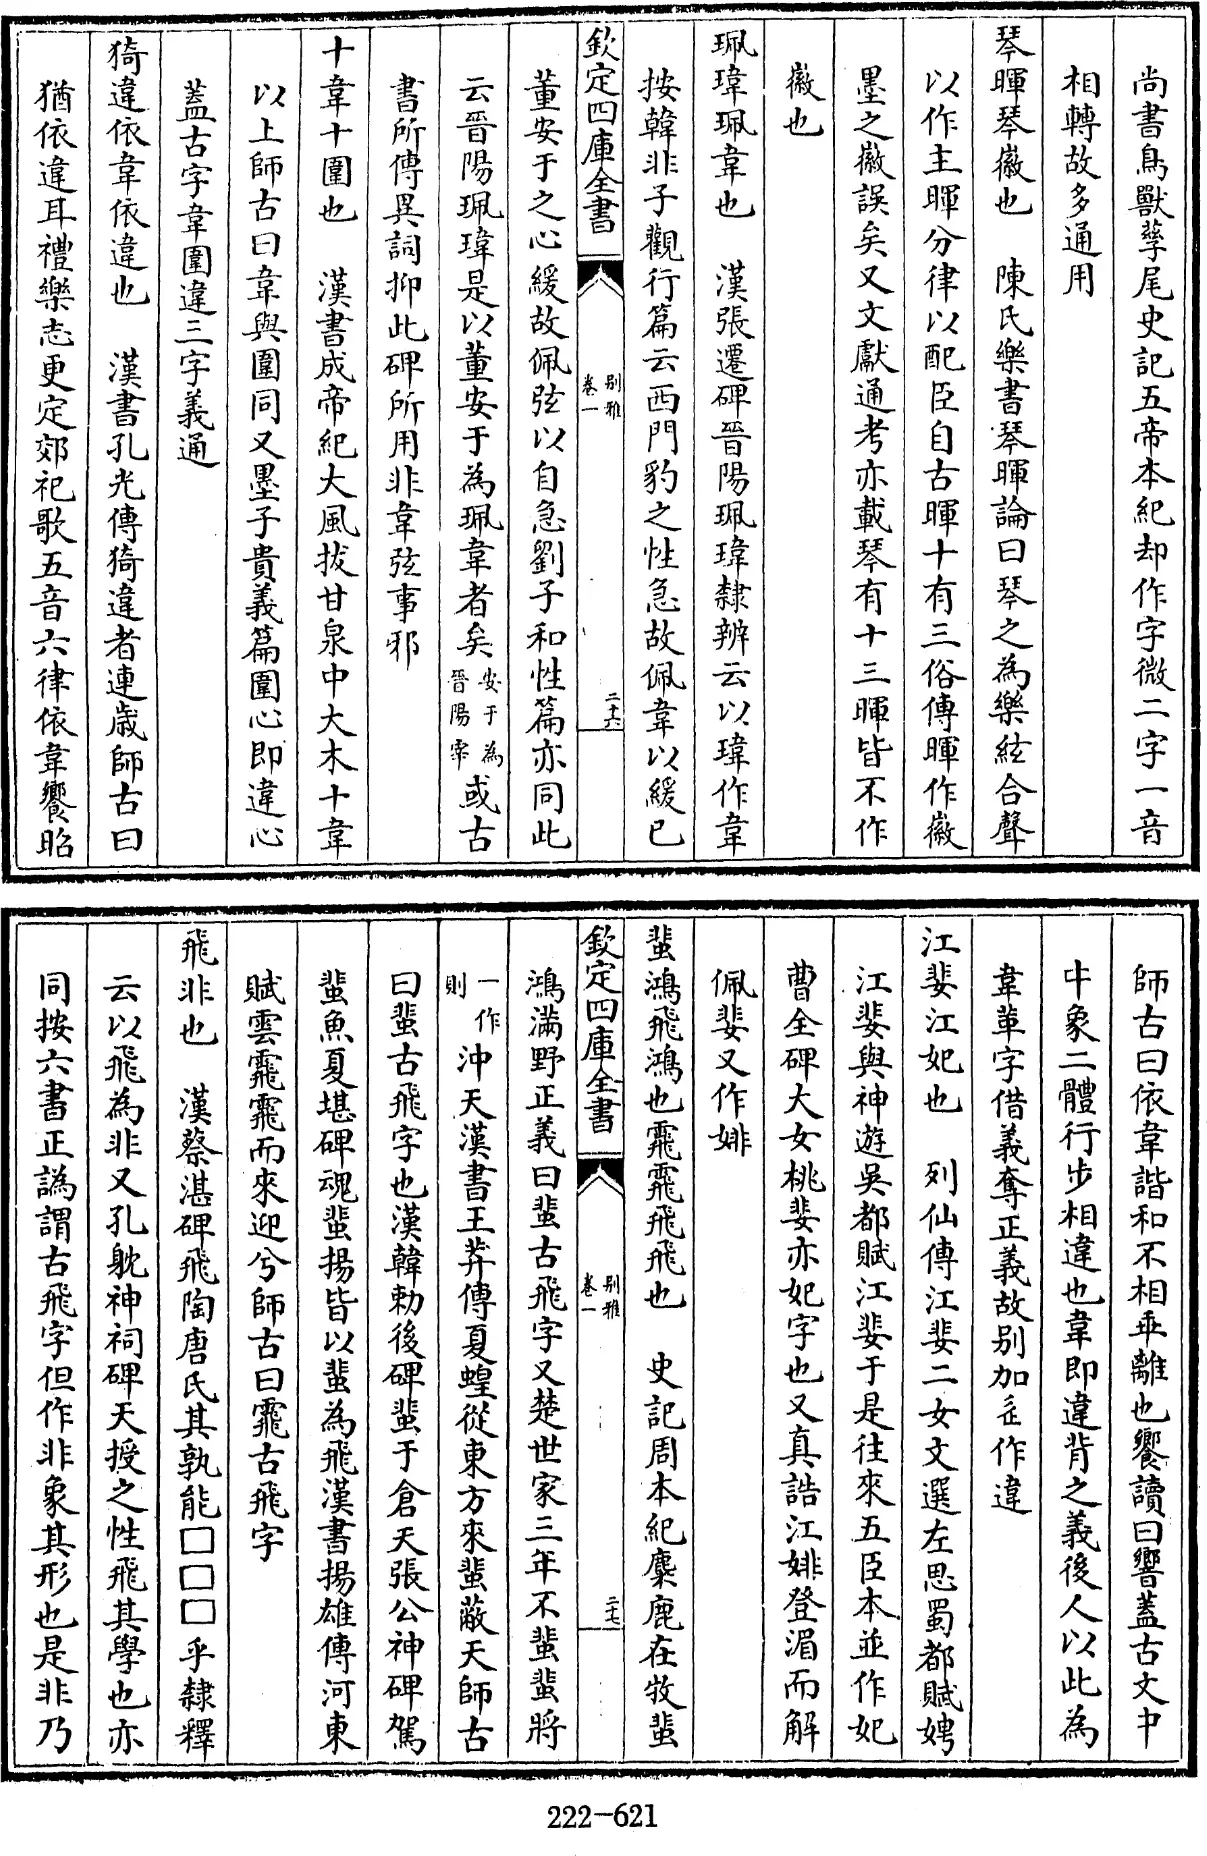 尚書鳥獸孳尾史記五帝本紀却作字微二字一音
相轉故多通用
琴暉琴徽也　陳氏樂書琴暉論曰琴之為樂絃合聲
以作主暉分律以配臣自古暉十有三俗傳暉作徽
墨之徽誤矣又文獻通考亦載琴有十三暉皆不作
徽也
珮瑋珮韋也　漢張遷碑晉陽珮瑋隸辨云以瑋作韋
按韓非子觀行篇云西門豹之性急故佩韋以緩已
欽定四庫全書
别雅
卷一
二十六
董安于之心緩故佩弦以自急劉子和性篇亦同此
云晉陽珮瑋是以董安于為珮韋者矣安于為晉陽宰或古
書所傳異詞抑此碑所用非韋弦事邪
十韋十圍也　漢書成帝紀大風拔甘泉中大木十韋
以上師古曰韋與圍同又墨子貴義篇圍心即違心
蓋古字韋圍違三字義通
猗違依韋依違也　漢書孔光傳猗違者連歳師古曰
猶依違耳禮樂志更定郊祀歌五音六律依韋饗昭
師古曰依韋諧和不相乖離也饗讀曰響蓋古文韋
象二體行步相違也韋即違背之義後人以此為
韋革字借義奪正義故别加辵作違
江婓江妃也　列仙傳江婓二女文選左思蜀都賦娉
江婓與神遊吳都賦江婓于是往來五臣本並作妃
曹全碑大女桃婓亦妃字也又真誥江婔登湄而解
佩婓又作婔
蜚鴻飛鴻也霏霏飛飛也　史記周本紀麋鹿在牧蜚
欽定四庫全書
别雅
卷一
二十七
鴻滿野正義曰蜚古飛字又楚世家三年不蜚蜚將
一作則沖天漢書王莽傳夏蝗從東方來蜚蔽天師古
曰蜚古飛字也漢韓勑後碑蜚于倉天張公神碑駕
蜚魚夏堪碑魂蜚揚皆以蜚為飛漢書揚雄傳河東
賦雲霏霏而來迎兮師古曰霏古飛字
飛非也　漢蔡湛碑飛陶唐氏其孰能□□□乎隸釋
云以飛為非又孔躭神祠碑天授之性飛其學也亦
同按六書正譌謂古飛字但作非象其形也是非乃
222-621